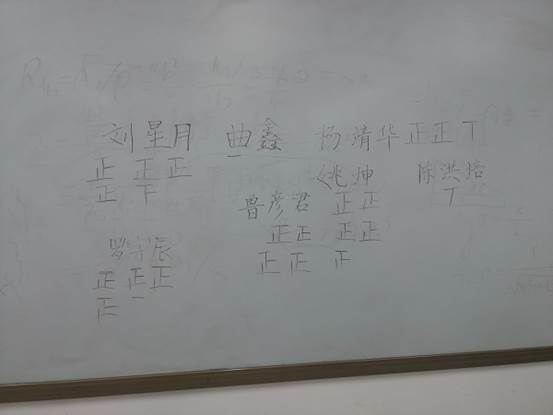 刘星月 曲鑫 杨靖华 正正丅
正 正 正
正 下
姚坤 陈洪培
鲁彦君 正正 丅
正正 正正
正正 正
辰
正 正 正
正